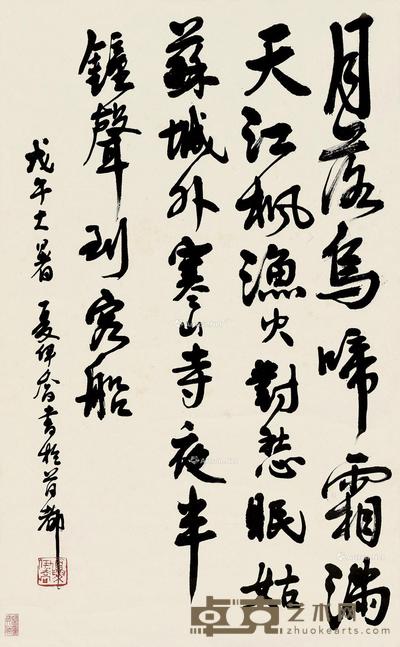 月落烏啼霜滿
天江楓漁火對愁眠姑
蘇城外寒山寺夜半
鐘聲到客船
戊午大暑 夏伊喬書於首都
卓克艺术网
www.zhuokearts.com